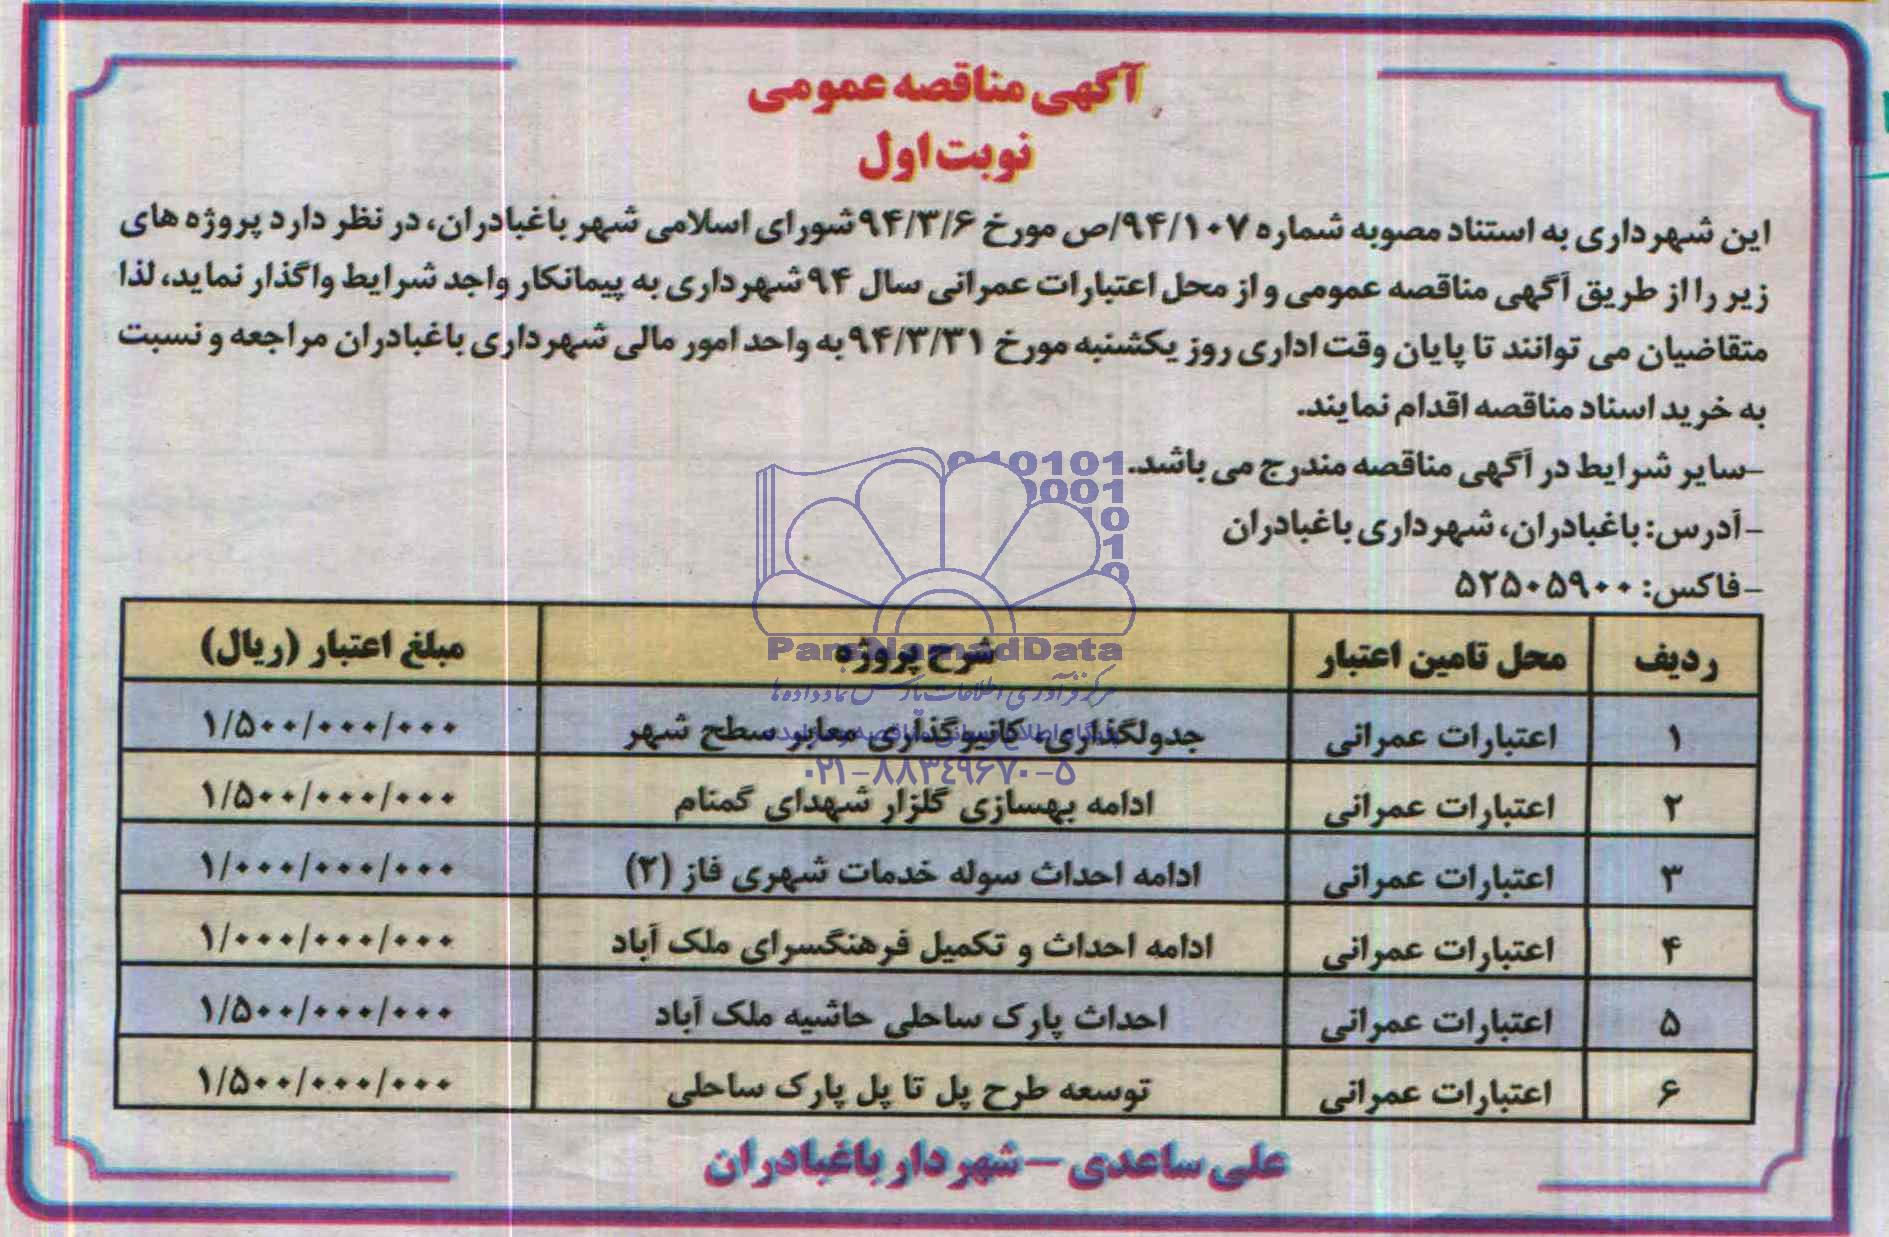 آگهی مناقصه عمومی
نوبت اول
این شهرداری به استناد مصوبه شماره ۹۴/۱۰۷/ص مورخ ۹۴/۳/۶ شورای اسلامی شهر باغبادران، در نظر دارد پروژه های
زیر را از طریق آگهی مناقصه عمومی و از محل اعتبارات عمرانی سال ۹۴ شهرداری به پیمانکار واجد شرایط واگذار نماید، لذا
متقاضیان می توانند تا پایان وقت اداری روز یکشنبه مورخ ۹۴/۳/۳۱ به واحد امور مالی شهرداری باغبادران مراجعه و نسبت
به خرید اسناد مناقصه اقدام نمایند.
-سایر شرایط در آگهی مناقصه مندرج می باشد.
-آدرس: باغبادران، شهرداری باغبادران
-فاکس: ۵۲۵۰۵۹۰۰
ردیف محل تامین اعتبار شرح پروژه مبلغ اعتبار (ریال)
۱ اعتبارات عمرانی جدولگذاری، کانیوگذاری معابر سطح شهر ۱/۵۰۰/۰۰۰/۰۰۰
۲ اعتبارات عمرانی ادامه بهسازی گلزار شهدای گمنام ۱/۵۰۰/۰۰۰/۰۰۰
۳ اعتبارات عمرانی ادامه احداث سوله خدمات شهری فاز (۲) ۱/۰۰۰/۰۰۰/۰۰۰
۴ اعتبارات عمرانی ادامه احداث و تکمیل فرهنگسرای ملک آباد ۱/۰۰۰/۰۰۰/۰۰۰
۵ اعتبارات عمرانی احداث پارک ساحلی حاشیه ملک آباد ۱/۵۰۰/۰۰۰/۰۰۰
۶ اعتبارات عمرانی توسعه طرح پل تا پل پارک ساحلی ۱/۵۰۰/۰۰۰/۰۰۰
علی ساعدی – شهردار باغبادران
ParsNamadData
مرکز فرآوری اطلاعات پارس نماد داده ها
۰۲۱-۸۸۳۴۹۶۷۰-۵